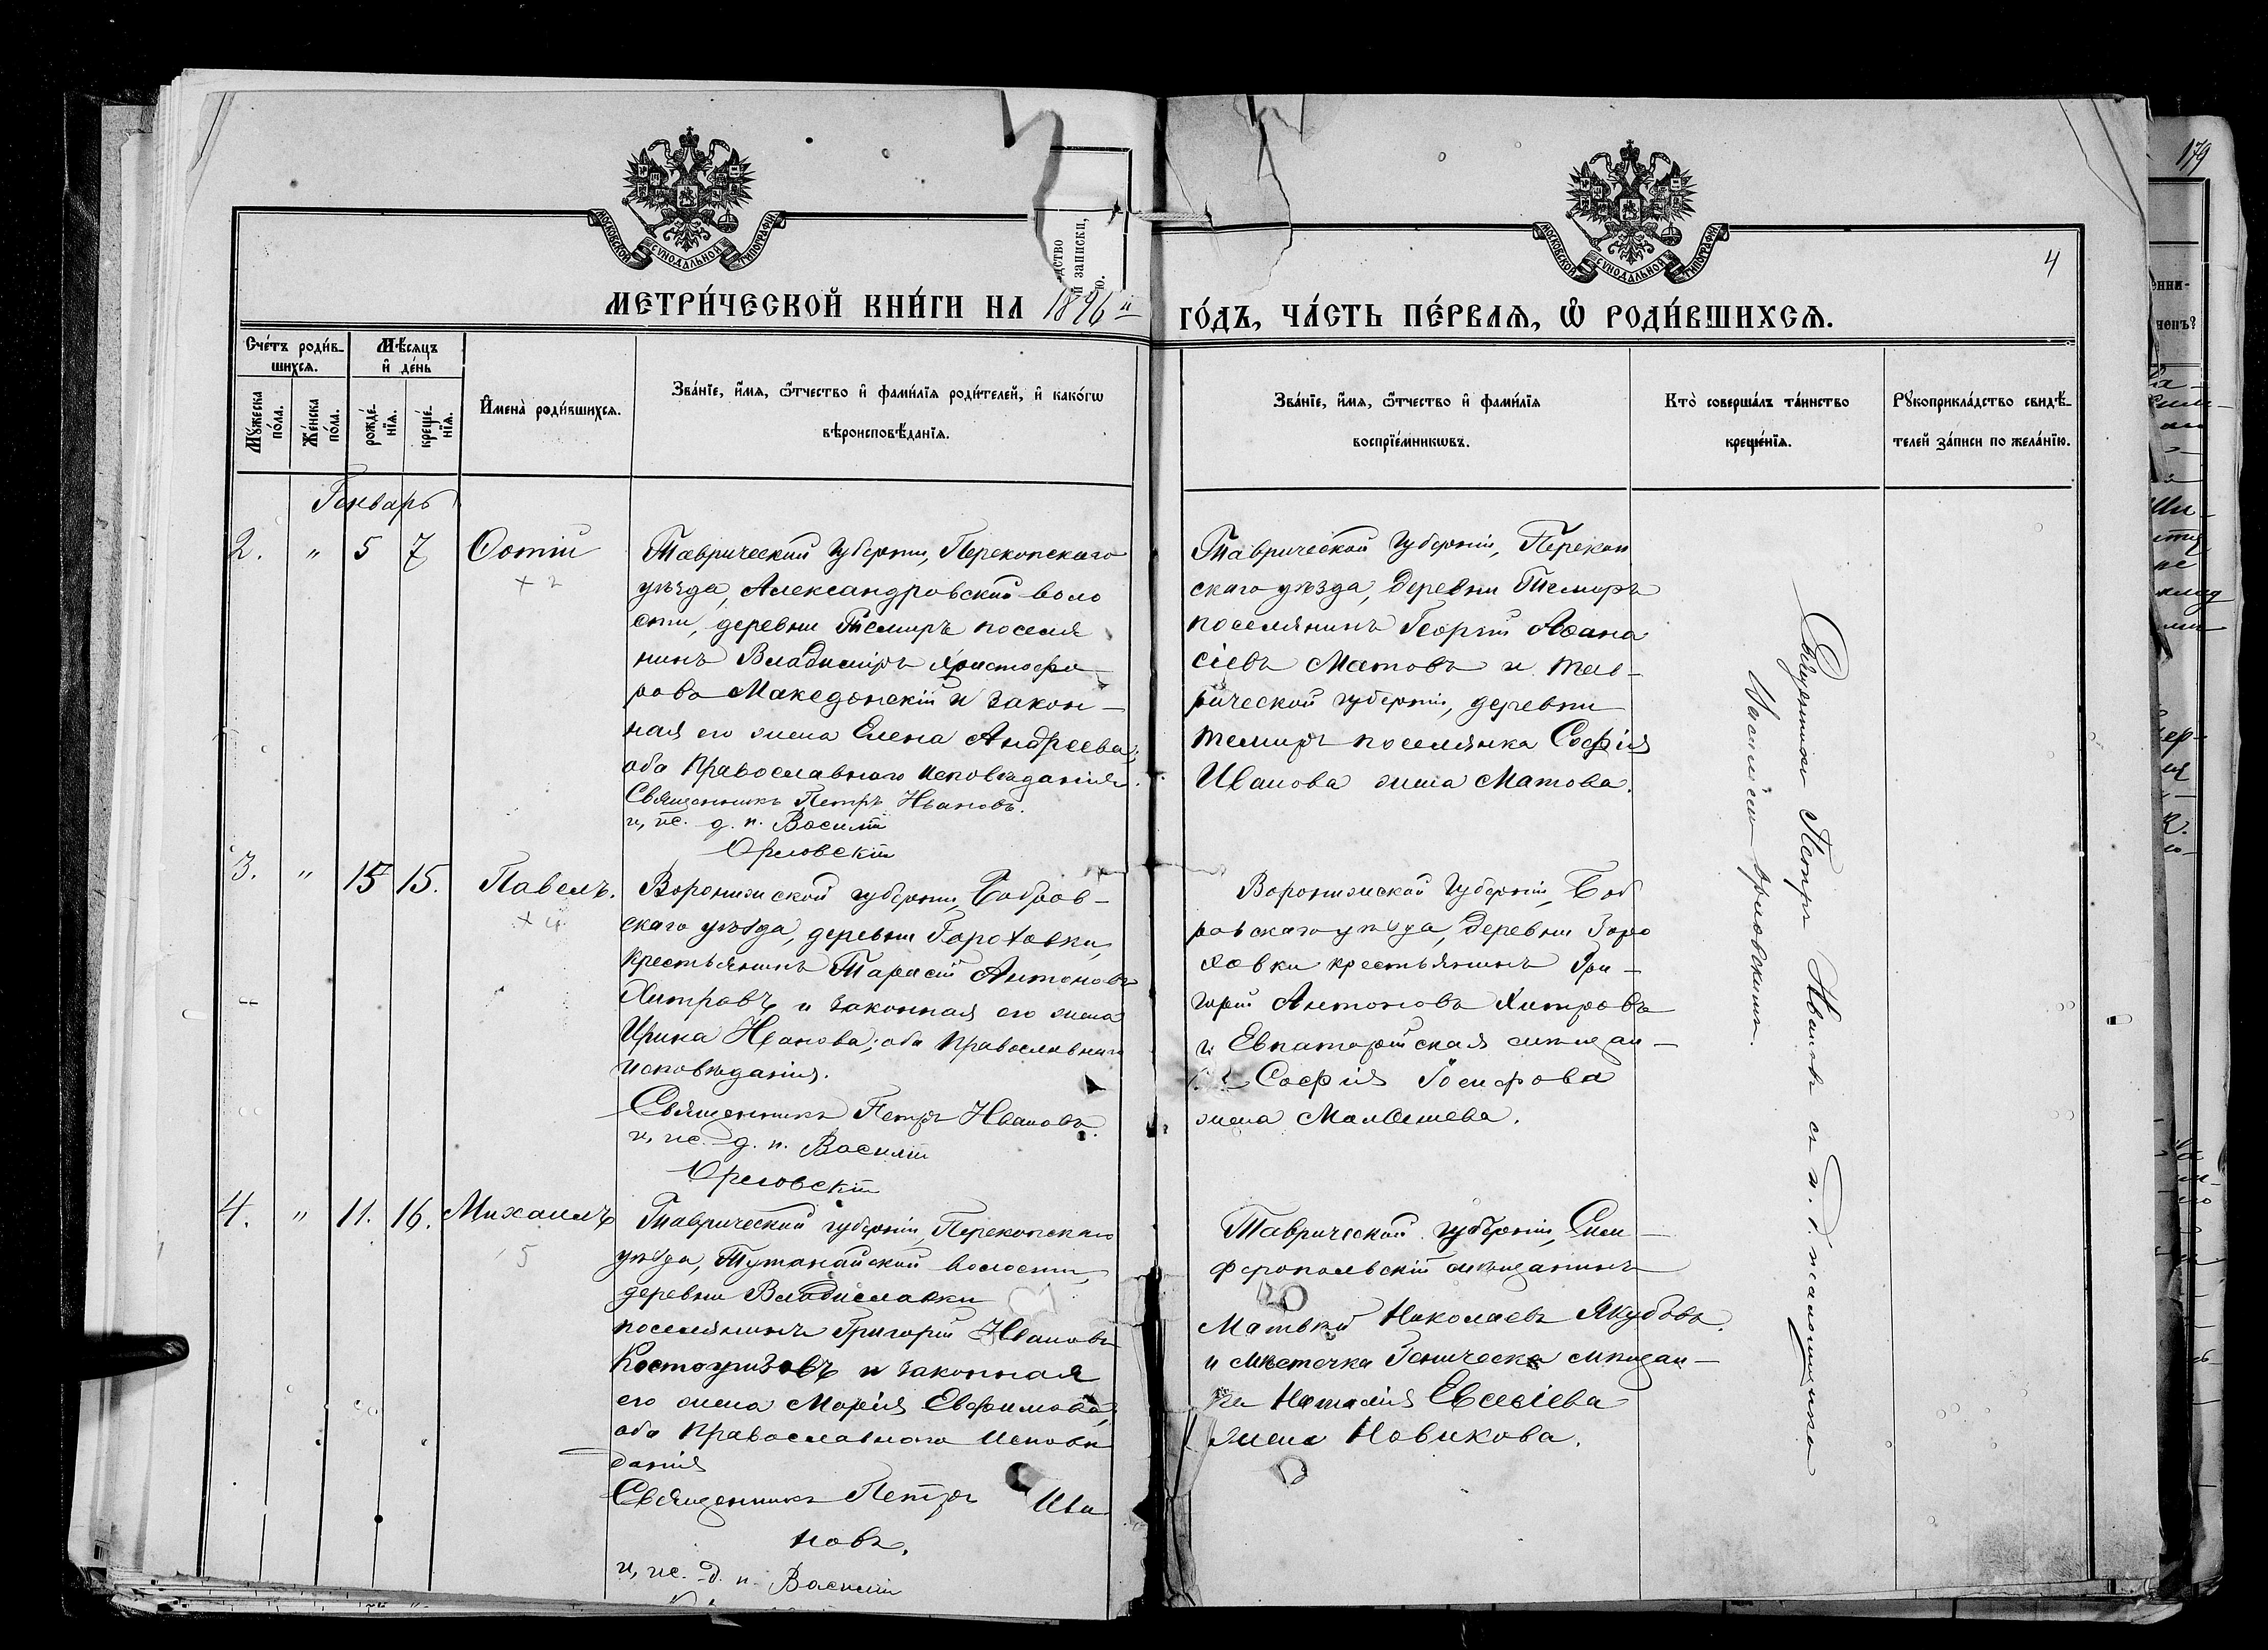 МОСКОВСКОЙ СѴНОДАЛЬНОЙ ТИПОГРАФІИ
МОСКОВСКОЙ СѴНОДАЛЬНОЙ ТИПОГРАФІИ
4
179
МЕТРИ́ЧЕСКОЙ КНИ́ГИ НА 1896й ГО́ДЪ, ЧА́СТЬ ПЕ́РВАѦ, Ѡ҆ РОДИ́ВШИХСѦ.
Сче́тъ роди́в-
шихсѧ.
Мꙋ́жеска по́ла.
Же́нска по́ла.
Мѣ́сѧцъ
и҆ де́нь
рожде́-
нїѧ.
креще́-
нїѧ.
И҆мена̀ роди́вшихсѧ.
Зва́нїе, и҆́мѧ, ѻ҆́тчество и҆ фами́лїѧ роди́телей, и҆ како́гѡ
вѣроисповѣ́данїѧ.
Зва́нїе, и҆́мѧ, ѻ҆́тчество и҆ фами́лїѧ
воспрїе́мникѡвъ.
Кто̀ соверша́лъ та́инство
креще́нїѧ.
Рꙋкоприкла́дство свидѣ́-
телей за́писи по жела́нїю.
Генварь
2. " 5 7 Фотій
Таврической губерніи, Перекопскаго
уѣзда, Александровской воло
сти, деревни Темиръ поселя
нинъ Владиміръ Христофо
ровъ Македонскій и закон-
ная его жена Елена Андреева;
оба Православнаго Исповѣданія.
Священникъ Петръ Ивановъ.
и, ис. д. п. Василій
Орловскій
Таврической Губерніи, Перекоп
скаго уѣзда, Деревни Темиръ
поселянинъ Георгій Аѳана
сіевъ Матовъ и Тав-
рической губерніи, деревни
Темиръ поселянка Софія
Иванова жена Матова.
3. " 15 15. Павелъ.
Воронежской губерніи, Бобров-
скаго уѣзда, деревни Гороховки,
крестьянинъ Тарасій Антоновъ
Хитровъ и законная его жена
Ирина Иванова; оба Православнаго
исповѣданія.
Священникъ Петръ Ивановъ.
и, ис. д. п. Василій
Орловскій
Воронежской Губерніи, Боб
ровскаго уѣзда, Деревни Горо
ховки крестьянинъ Гри-
горій Антоновъ Хитровъ
и Евпаторійская мѣщан-
Софія Іосифова
жена
4. " 11. 16. Михаилъ
5
Таврической губерніи, Перекопскаго
уѣзда, Тутанайской волости,
деревни Владиславки
поселянинъ Григорій Ивановъ
Костогризовъ и законная
его жена Марія Евфимова;
оба Православнаго Исповѣ
данія
Священникъ Петръ Ива
новъ.
и, ис. д. п. Василій
Таврической губерніи, Сим-
феропольскій мѣщанинъ
Матвѣй Николаевъ Якубовъ.
и мѣстечка Геническа мѣщан-
ка Наталія Евсевіева
жена Новикова.
Священникъ Петръ Ивановъ съ и. д. псаломщика
Василіемъ Орловскимъ.